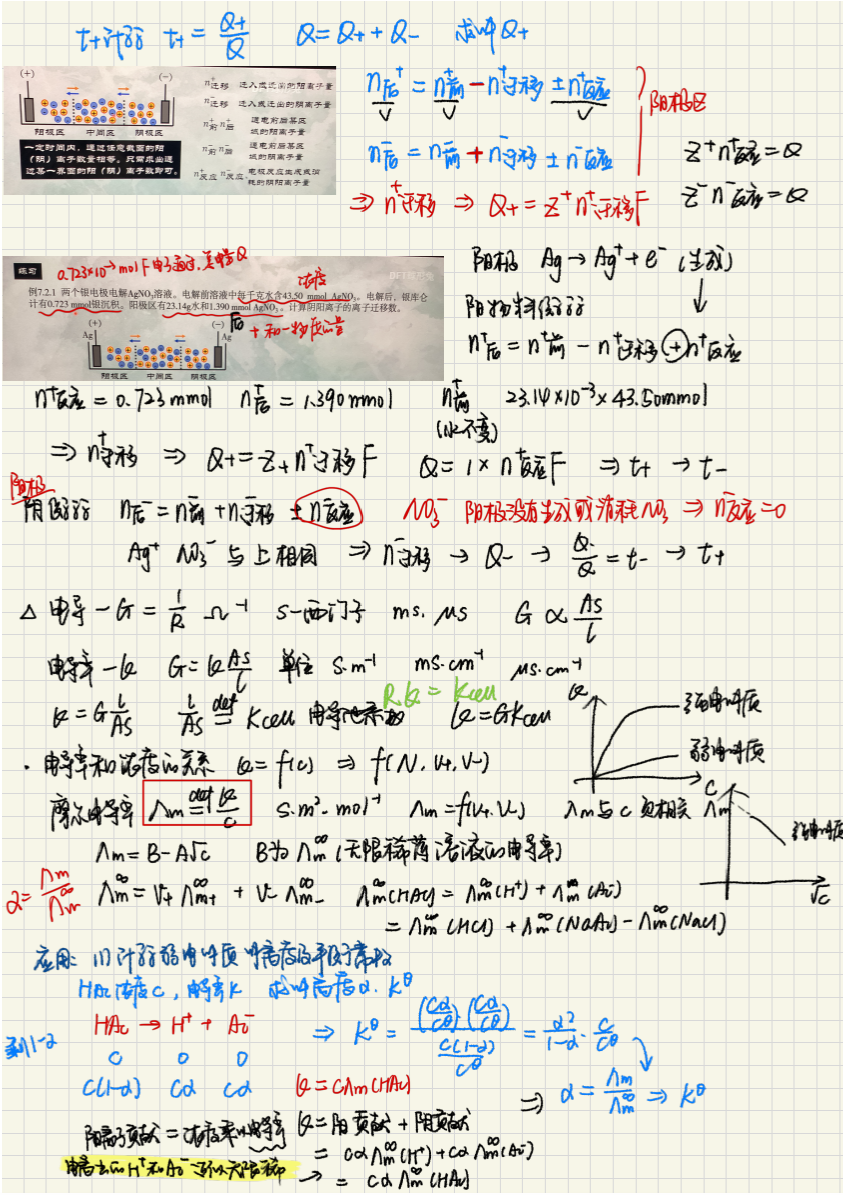 t₊计算 t₊ = Q₊/Q Q = Q₊ + Q₋ 求出Q₊
(+) (−)
阳极区 中间区 阴极区
一定时间内，通过任意截面的阳
（阴）离子数量相等。只需求出通
过某一界面的阳（阴）离子数即可。
n⁺迁移 迁入或迁出的阳离子量
n⁻迁移 迁入或迁出的阴离子量
n⁺前 n⁺后 通电前后某区域的阳离子量
n⁻前 n⁻后 通电前后某区域的阴离子量
n⁺反应 n⁻反应 电极反应生成或消耗的阴阳离子量
n后⁺ = n⁺前 − n⁺迁移 ± n⁺反应
阳极区
n后⁻ = n⁻前 + n⁻迁移 ± n⁻反应
z⁺n⁺反应 = Q
z⁻n⁻反应 = Q
⇒ n⁺迁移 ⇒ Q₊ = z⁺n⁺迁移F
练习
0.723×10⁻³ mol F 电子通过, 总电Q
浓度
例7.2.1 两个银电极电解AgNO₃溶液。电解前溶液中每千克水含43.50 mmol AgNO₃。电解后，银库仑
计有0.723 mmol银沉积。阳极区有23.14g水和1.390 mmol AgNO₃。计算阴阳离子的离子迁移数。
后
(+) (−)
Ag Ag
阳极区 中间区 阴极区
阳极 Ag → Ag⁺ + e⁻ (生成)
↓
n⁺后 = n⁺前 − n⁺迁移 + n⁺反应
n⁺反应 = 0.723 mmol n⁺后 = 1.390 mmol n⁺前 23.14×10⁻³×43.50mmol
(水不变)
⇒ n⁺迁移 ⇒ Q₊ = z₊n⁺迁移F Q = 1×n⁺反应F ⇒ t₊ → t₋
阳极
n后⁻ = n⁻前 + n⁻迁移 ± n⁻反应 NO₃⁻ 阳极没有生成或消耗NO₃ ⇒ n⁻反应 = 0
Ag⁺ NO₃⁻ 与上相同 ⇒ n⁻迁移 → Q₋ → Q₋/Q = t₋ → t₊
△ 电导 — G = 1/R Ω⁻¹ S−西门子 ms. μs G ∝ As/l
电导率 − κ G = κ As/l 单位 S·m⁻¹ mS·cm⁻¹ μs·cm⁻¹
R·κ = Kcell
κ = G l/As l/As def= Kcell 电导池系数 κ = GKcell
κ 强电解质
弱电解质
C
· 电导率和浓度的关系 κ = f(c) ⇒ f(N, V₊, V₋)
摩尔电导率 Λm def= κ/c S·m²·mol⁻¹ Λm = f(V₊, V₋) Λm与c负相关
Λm
强电解质
√c
Λm = B − A√c B为Λm^∞ (无限稀薄溶液的电导率)
α = Λm/Λm^∞
Λm^∞ = V₊Λm₊^∞ + V₋Λm₋^∞ Λm^∞(HAc) = Λm^∞(H⁺) + Λm^∞(Ac⁻)
= Λm^∞(HCl) + Λm^∞(NaAc) − Λm^∞(NaCl)
应用: (1) 计算弱电解质解离度及平衡常数
HAc浓度c, 电导率κ 求解离度α. K^θ
HAc → H⁺ + Ac⁻ ⇒ K^θ = (cα/c^θ)·(cα/c^θ) / (c(1−α)/c^θ) = α²/(1−α) · c/c^θ
c 0 0
c(1−α) cα cα κ = cΛm(HAc) ⇒ α = Λm/Λm^∞ ⇒ K^θ
κ = 阳贡献 + 阴贡献
= cαΛm^∞(H⁺) + cαΛm^∞(Ac⁻)
电离出的H⁺和Ac⁻可以无限稀 → = cαΛm^∞(HAc)